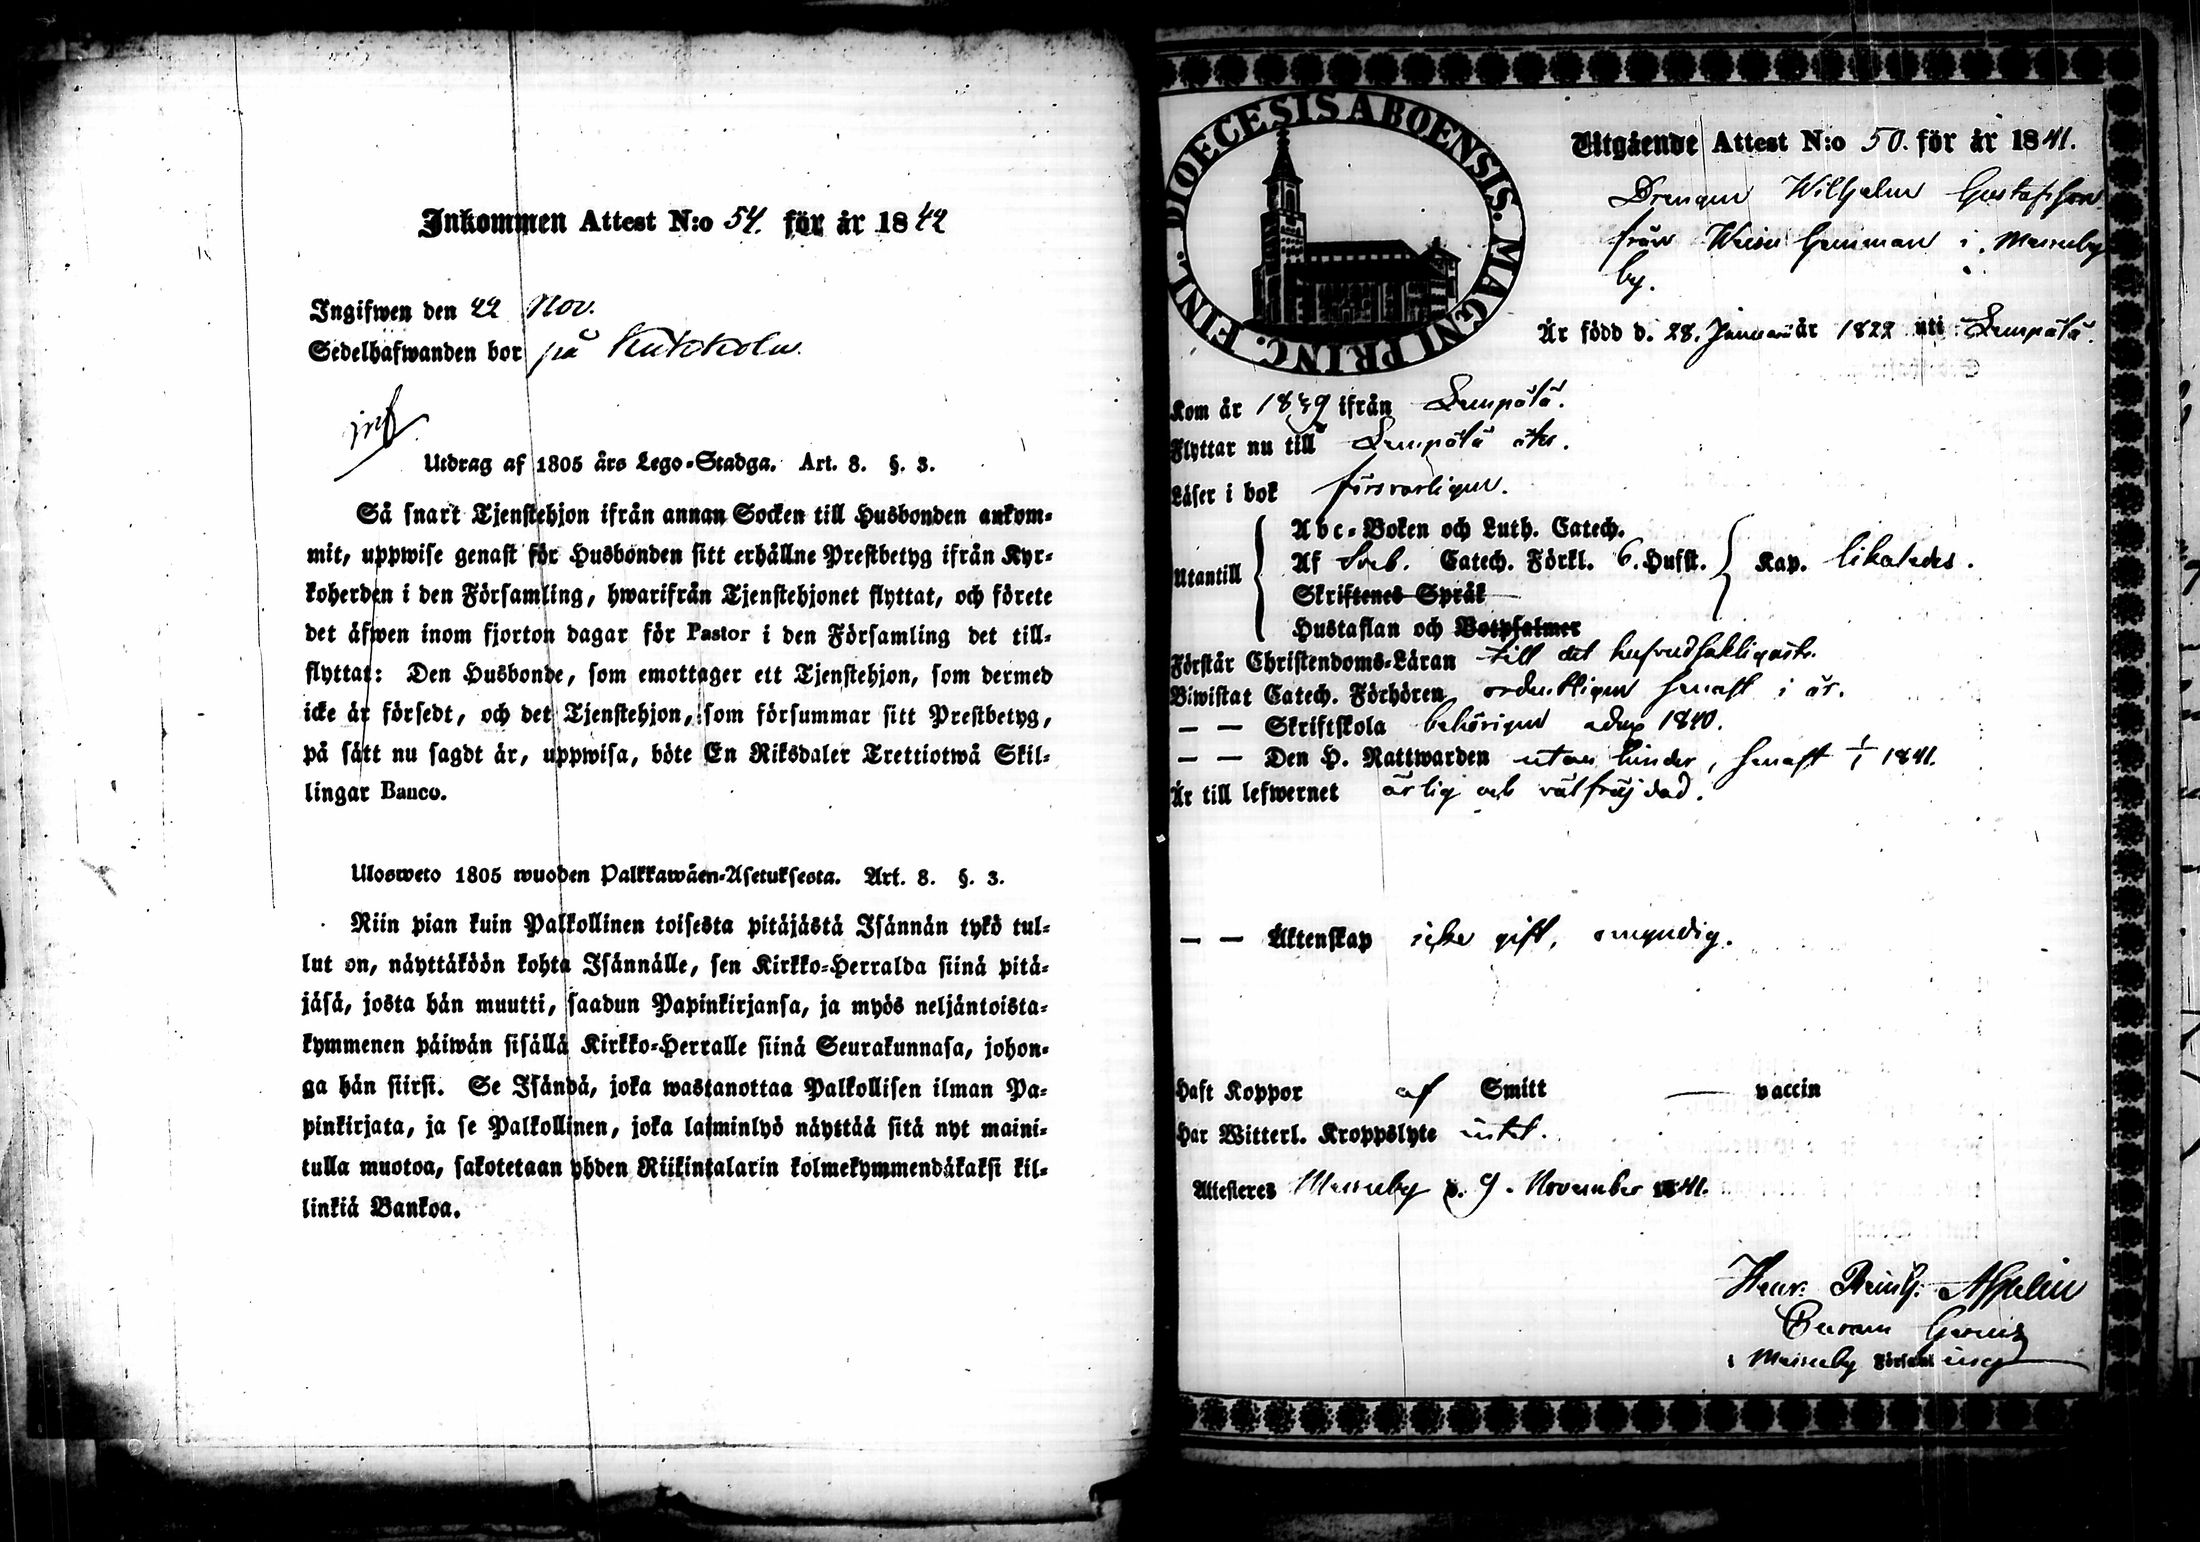 Inkommen Attest N:o 54. för år 1842
Ingifwen den 22 Nov.
Sedelhafwanden bor på Kukkola.
inf
Utdrag af 1805 års Lego-Stadga. Art. 8. §. 3.
Så snart Tjenstehjon ifrån annan Socken till Husbonden ankom-
mit, uppwise genast för Husbonden sitt erhållne Prestbetyg ifrån Kyr-
koherden i den Församling, hwarifrån Tjenstehjonet flyttat, och förete
det äfwen inom fjorton dagar för Pastor i den Församling det till-
flyttat: Den Husbonde, som emottager ett Tjenstehjon, som dermed
icke är försedt, och det Tjenstehjon, som försummar sitt Prestbetyg,
på sätt nu sagdt är, uppwisa, böte En Riksdaler Trettiotwå Skil-
lingar Banco.
Ulosweto 1805 wuoden Palkkawäen-Asetuksesta. Art. 8. §. 3.
Niin pian kuin Palkollinen toisesta pitäjästä Isännän tykö tul-
lut on, näyttäköön kohta Isännälle, sen Kirkko-Herralda siinä pitä-
jäsä, josta hän muutti, saadun Papinkirjansa, ja myös neljäntoista-
kymmenen päiwän sisällä Kirkko-Herralle siinä Seurakunnasa, johon-
ga hän siirsi. Se Isändä, joka wastanottaa Palkollisen ilman Pa-
pinkirjata, ja se Palkollinen, joka laiminlyö näyttää sitä nyt maini-
tulla muotoa, sakotetaan yhden Riikintalarin kolmekymmendäkaksi kil-
linkiä Bankoa.
DIOECESIS ABOENSIS. MAGNI PRINC. FINL.
Utgående Attest N:o 50. för år 1841.
Drengen Wilhelm Gustafsson
från hemman i
by.
Är född d. 28. Januari år 1822 uti Lempälä.
Kom år 1839 ifrån Lempälä.
Flyttar nu till Lempälä åter.
Läser i bok försvarligen.
Abc-Boken och Luth. Catech.
Utantill Af Sveb. Catech. Förkl. 6. Hufst. Kap. likaledes.
Skriftenes Språk
Hustaflan och Botpsalmer
Förstår Christendoms-Läran till det hufvudsakligaste.
Biwistat Catech. Förhören ordentligen senast i år.
— — Skriftskola behörigen 1840.
— — Den H. Nattwarden utan hinder, senast 1/1 1841.
Är till lefwernet ärlig och välfräjdad.
— — Äktenskap icke gift, omyndig.
Haft Koppor af Smitt — vaccin
Har Witterl. Kroppslyte intet.
Attesteres d. 9. November 1841.
Henr. Reinh. Aspelin
i Församling